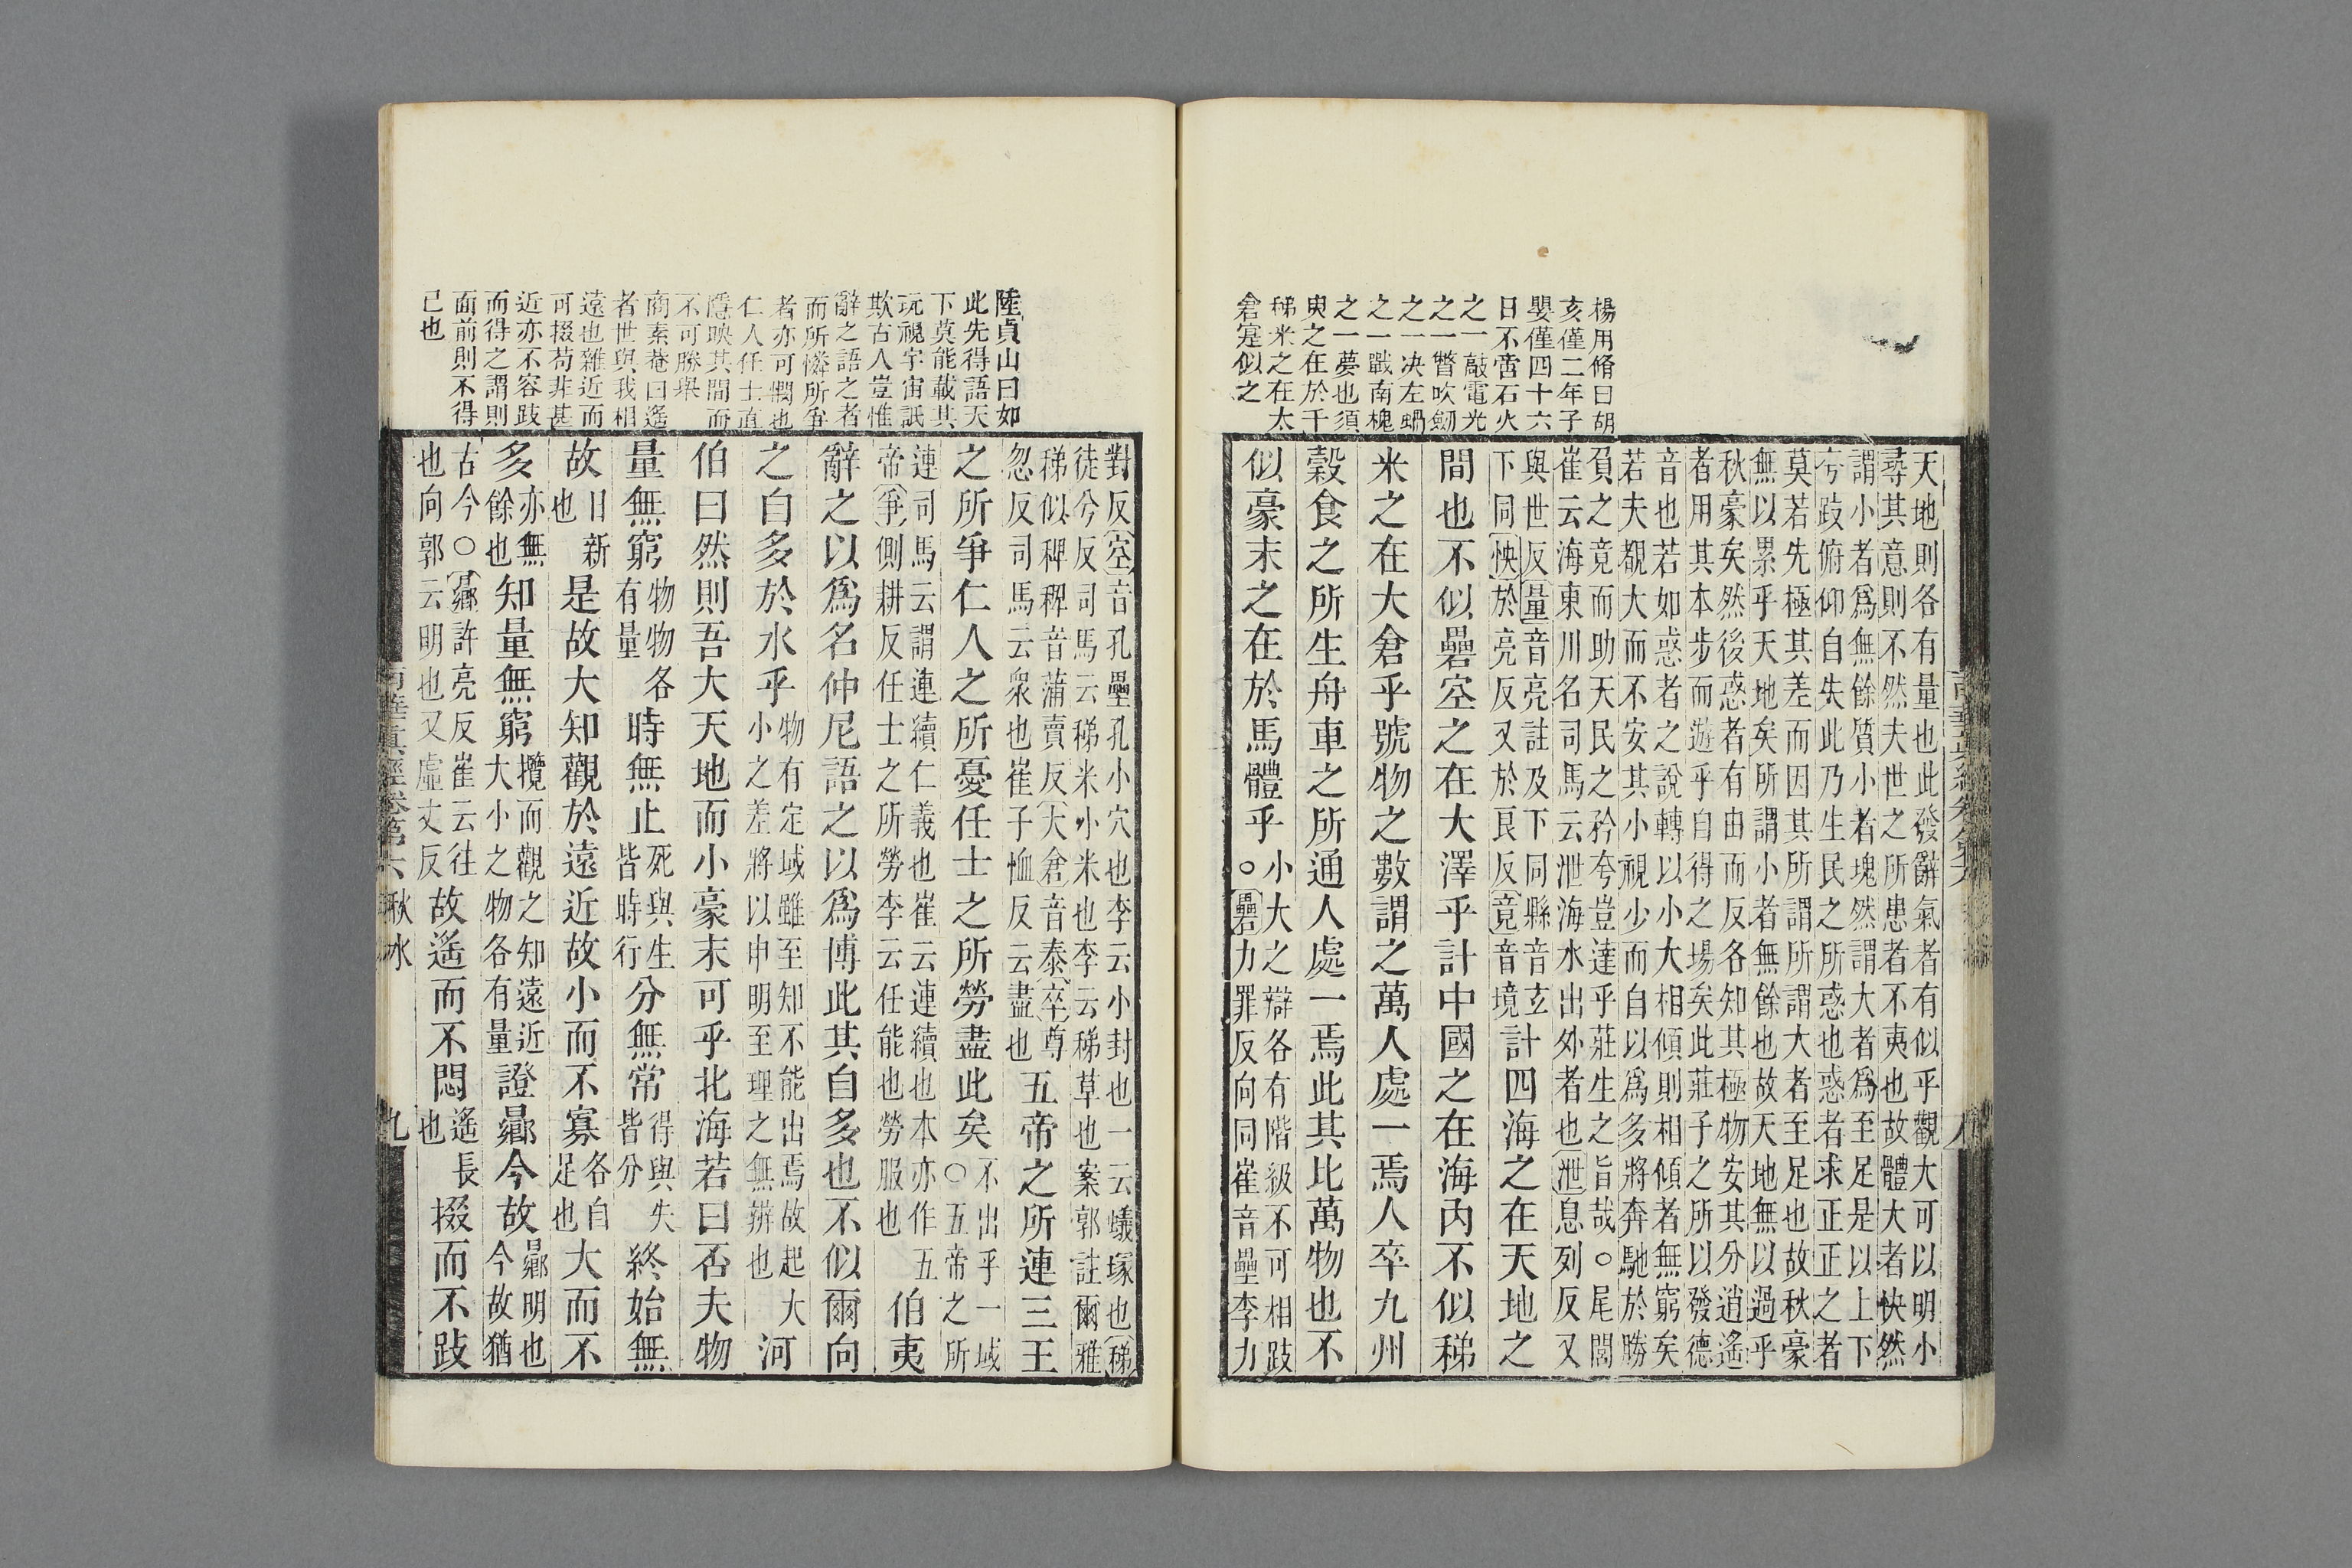 楊用脩曰胡
亥僅二年子
嬰僅四十六
日不啻石火
之一敲電光
之一瞥吹劒
之一决左蝸
之一戰南槐
之一夢也須
臾之在於千
稊米之在太
倉寔似之
天地則各有量也此發辭氣者有似乎觀大可以明小
尋其意則不然夫世之所患者不夷也故體大者快然
謂小者爲無餘質小者塊然謂大者爲至足是以上下
夸跂俯仰自失此乃生民之所惑也惑者求正正之者
莫若先極其差而因其所謂所謂大者至足也故秋豪
無以累乎天地矣所謂小者無餘也故天地無以過乎
秋豪矣然後惑者有由而反各知其極物安其分逍遙
者用其本步而遊乎自得之場矣此莊子之所以發德
音也若如惑者之說轉以小大相傾則相傾者無窮矣
若夫覩大而不安其小視少而自以爲多將奔馳於勝
負之竟而助天民之矜夸豈達乎莊生之旨哉○尾閭
崔云海東川名司馬云泄海水出外者也泄息列反又
與世反量音亮註及下同縣音玄
下同怏於亮反又於良反竟音境計四海之在天地之
間也不似礨空之在大澤乎計中國之在海內不似稊
米之在大倉乎號物之數謂之萬人處一焉人卒九州
穀食之所生舟車之所通人處一焉此其比萬物也不
似豪末之在於馬體乎小大之辯各有階級不可相跂
○礨力罪反向同崔音壘李力
八
陸貞山曰如
此先得語天
下莫能載其
玩視宇宙詆
欺古人豈惟
辭之語之者
而所憐所爭
者亦可憫也
仁人任士直
隱映其間而
不可勝舉
商素菴曰遙
者世與我相
遠也雖近而
可掇苟非甚
近亦不容跂
而得之謂則
面前則不得
已也
對反空音孔壘孔小穴也李云小封也一云蟻塚也稊
徒兮反司馬云稊米小米也李云稊草也案郭註爾雅
稊似稗稗音蒲賣反大倉音泰卒尊
忽反司馬云衆也崔子恤反云盡也五帝之所連三王
之所爭仁人之所憂任士之所勞盡此矣不出乎一域
○五帝之所
連司馬云謂連續仁義也崔云連續也本亦作五
帝爭側耕反任士之所勞李云任能也勞服也伯夷
辭之以爲名仲尼語之以爲博此其自多也不似爾向
之自多於水乎物有定域雖至知不能出焉故起大
小之差將以申明至理之無辨也河
伯曰然則吾大天地而小豪末可乎北海若曰否夫物
量無窮物物各有量時無止死與生皆時行分無常得與失皆分終始無
故日新也是故大知觀於遠近故小而不寡各自足也大而不
多亦無餘也知量無窮攬而觀之知遠近大小之物各有量證曏今故曏明也今故猶
古今○曏許亮反崔云往
也向郭云明也又虛丈反故遙而不悶遙長也掇而不跂
南華真經卷第六 秋水 九